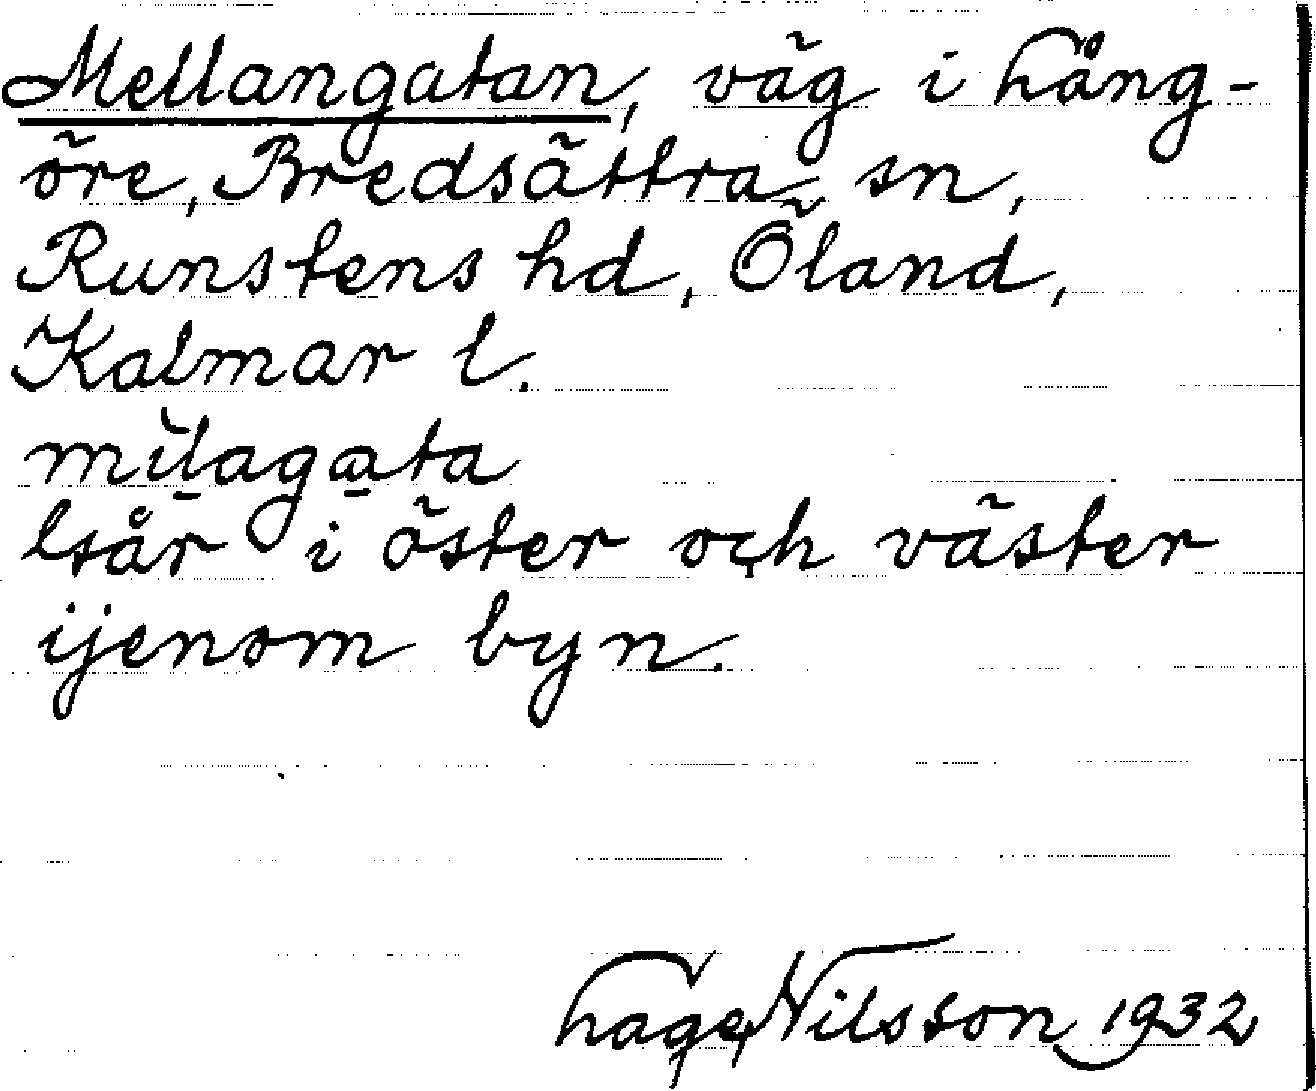 Mellangatan, väg i Lång-
öre, Bredsättra sn,
Runstens hd, Öland,
Kalmar l.
mĭlagata
Går i öster och väster
ijenom byn.
Lage Nilsson 1932